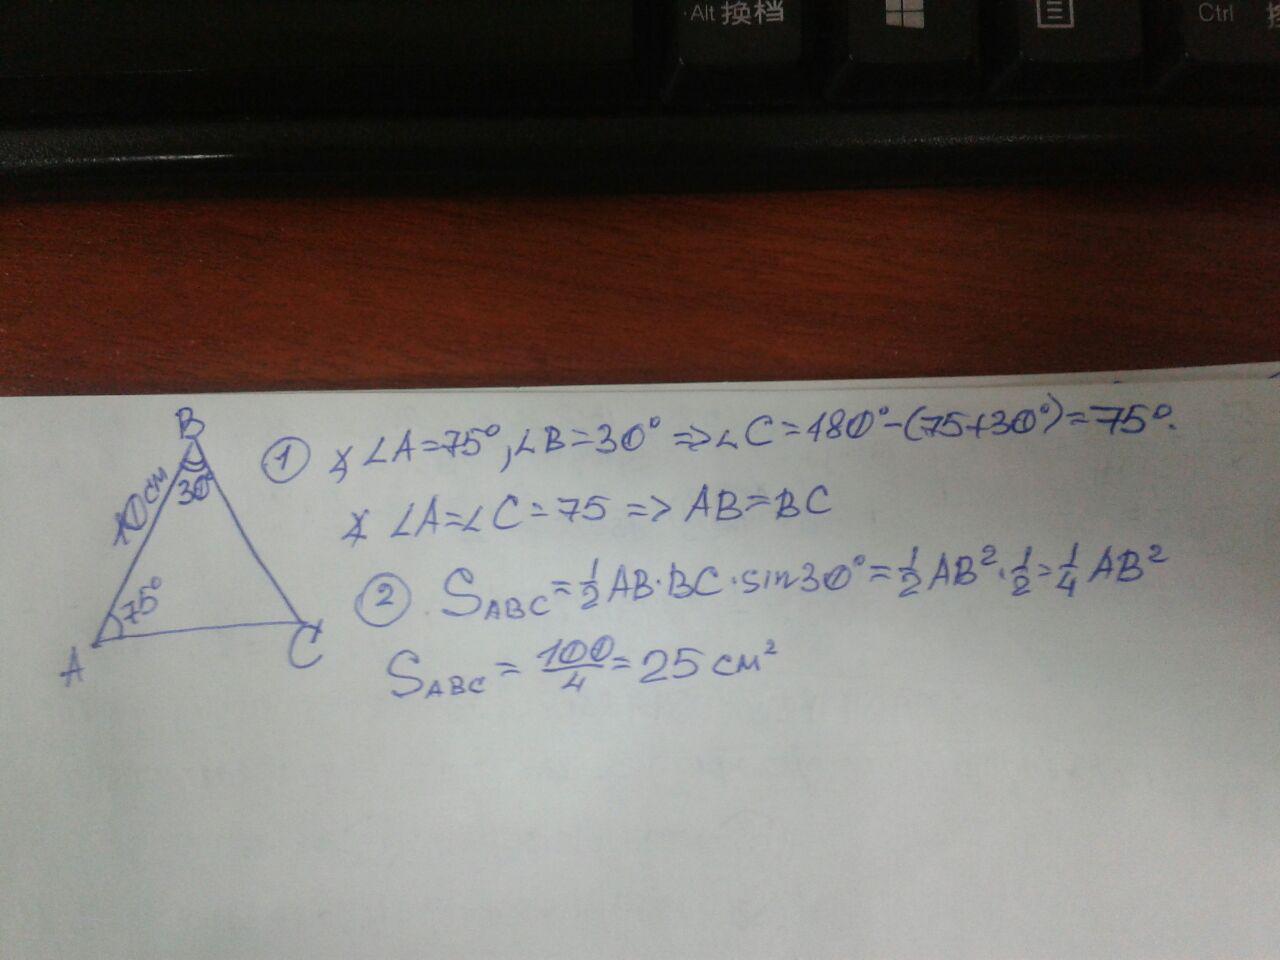 Alt 换档
Ctrl
B
10 см
30°
75°
A
C
① ∠A=75°, ∠B=30° => ∠C=180°-(75+30°)=75°.
∠A=∠C=75 => AB=BC
② S_ABC=1/2 AB·BC·sin30°=1/2 AB²·1/2=1/4 AB²
S_ABC=100/4=25 см²